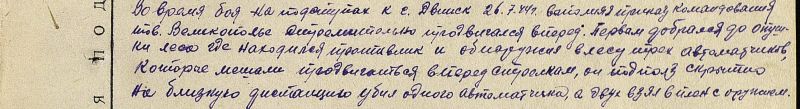 Во время боя на подступах к г. Двинск 26.7.44г. выполняя приказ командования
тов. Великополье стремительно продвигался вперед. Первым добрался до опуш-
ки леса где находился противник и обнаружил в лесу трех автоматчиков,
которые мешали продвигаться вперед стрелкам, он подполз скрытно
на близкую дистанцию убил одного автоматчика, а двух взял в плен с оружием.
п о д
я